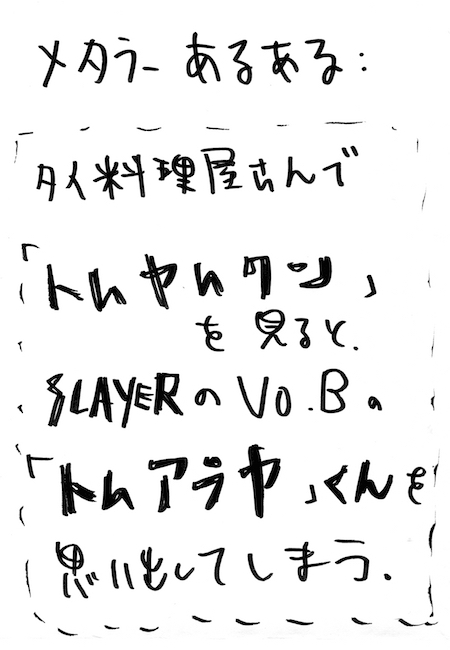 メタラーあるある:
タイ料理屋さんで
「トムヤムクン」
を見ると、
SLAYERのVo.Bの
「トムアラヤ」くんを
思い出してしまう.